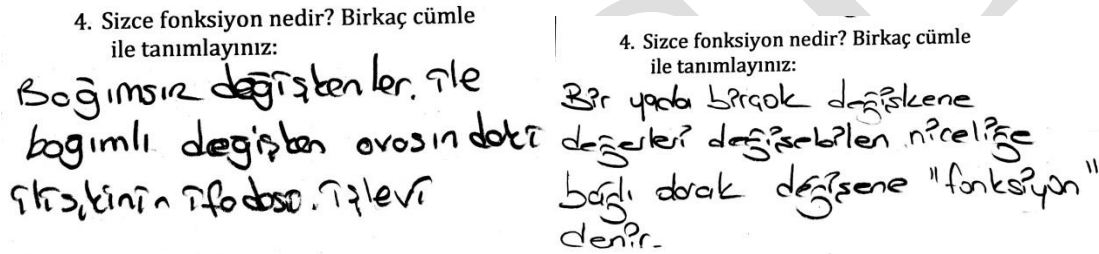 4. Sizce fonksiyon nedir? Birkaç cümle
ile tanımlayınız:
Bağımsız değişkenler ile
bağımlı değişken arasındaki
ilişkinin ifadesi. işlevi
4. Sizce fonksiyon nedir? Birkaç cümle
ile tanımlayınız:
Bir yada birçok değişkene
değerleri değişebilen niceliğe
bağlı olarak değişene "fonksiyon"
denir.